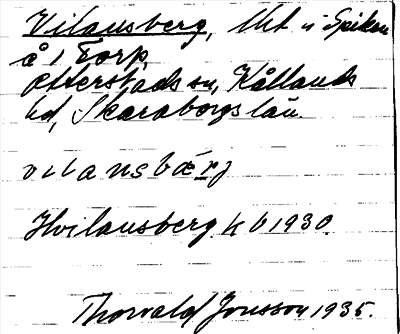 Vilansberg, lht u Spiken
å 1 Torp,
Otterstads sn, Kållands
hd, Skaraborgs län.
vilansbærj
Hvilansberg kb 1930.
Thorvald Jonsson 1935.